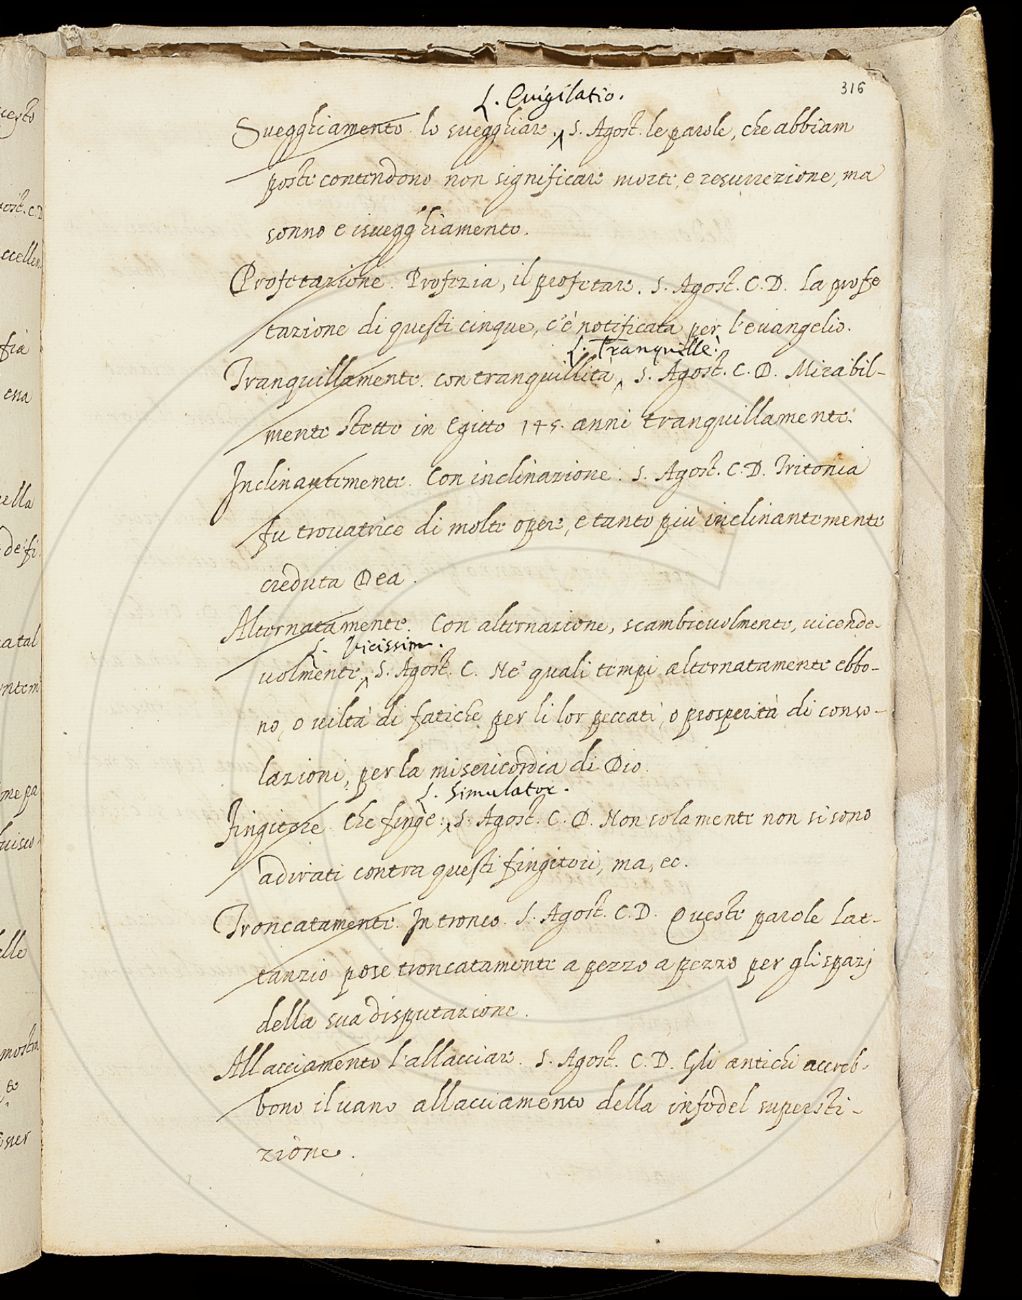 316
L. Euigilatio.
Suegghiamento. lo suegghiare. S. Agost. le parole, che abbiam
poste contendono non significare morte, e resurrezione, ma
sonno e isuegghiamento.
Profetazione. Profezia, il profetare. S. Agost. C. D. La profe
tazione di questi cinque, c'è notificata per l'euangelio.
L. Tranquillè.
Tranquillamente. con tranquillità, S. Agost. C. D. Mirabil-
mente stette in Egitto 145. anni tranquillamente.
Inclinantemente. Con inclinazione. S. Agost. C. D. Tritonia
fu trouatrice di molte opere, e tanto più inclinantemente
creduta Dea.
Alternatamente. Con alternazione, scambieuolmente, uicende-
L. Vicissim.
uolmente, S. Agost. C. Ne' quali tempi alternatamente ebbo-
no, o viltà di fatiche per li lor peccati, o prosperità di conso-
lazioni, per la misericordia di Dio.
L. Simulator.
Fingitore. Che finge. S. Agost. C. D. Non solamente non si sono
adirati contra questi fingitori, ma, ec.
Troncatamente. In tronco. S. Agost. C. D. Queste parole Lat-
tanzio pose troncatamente a pezzo a pezzo per gli spazj
della sua disputazione.
Allacciamento l'allacciare. S. Agost. C. D. Gli antichi accreb-
bono il uano allacciamento della infedel supersti-
zione.